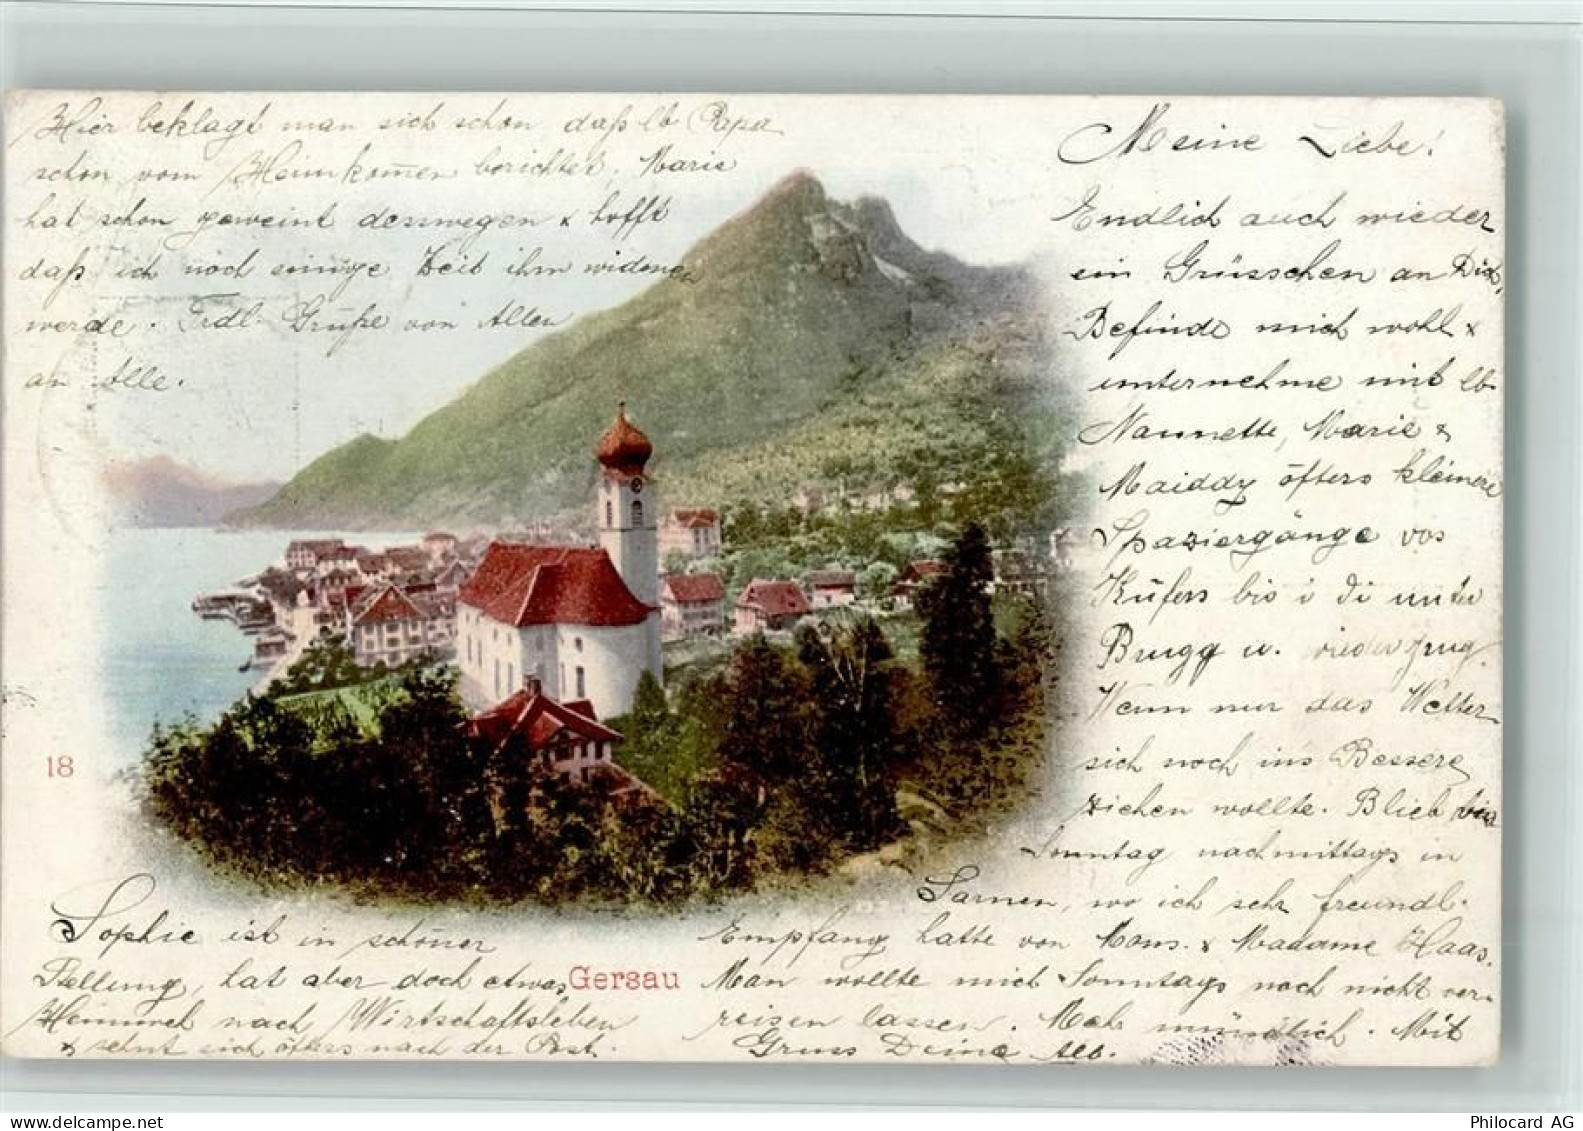 Meine Liebe!
Endlich auch wieder
ein Grüsschen an Dich,
Befinde mich wohl &
unternehme mit lb.
Nannette, Marie &
Maiddy öfters kleinere
Spaziergänge
Küfers bis i di unter
Brugg u. wieder zrug.
Wenn nur das Wetter
sich noch ins Bessere
ziehen wollte. Blieb
Sonntag nachmittags in
Sarnen, wo ich sehr freundl.
Empfang hatte von Mons. & Madame Haas.
Man wollte mich Sonntags noch nicht ver-
reisen lassen. Mehr mündlich. Mit
Gruss Deine
Hier beklagt man sich schon daß lb Papa
schon vom Heimkom̄en berichtet. Marie
hat schon geweint desswegen & hofft
daß ich noch einige Zeit ihm widmen
werde. Frdl. Grüße von Allen
an Alle.
Sophie ist in schöner
Stellung, hat aber doch etwas
Heimweh nach Wirtschaftsleben
& sehnt sich öfters nach der Post.
18
Gersau
Philocard AG